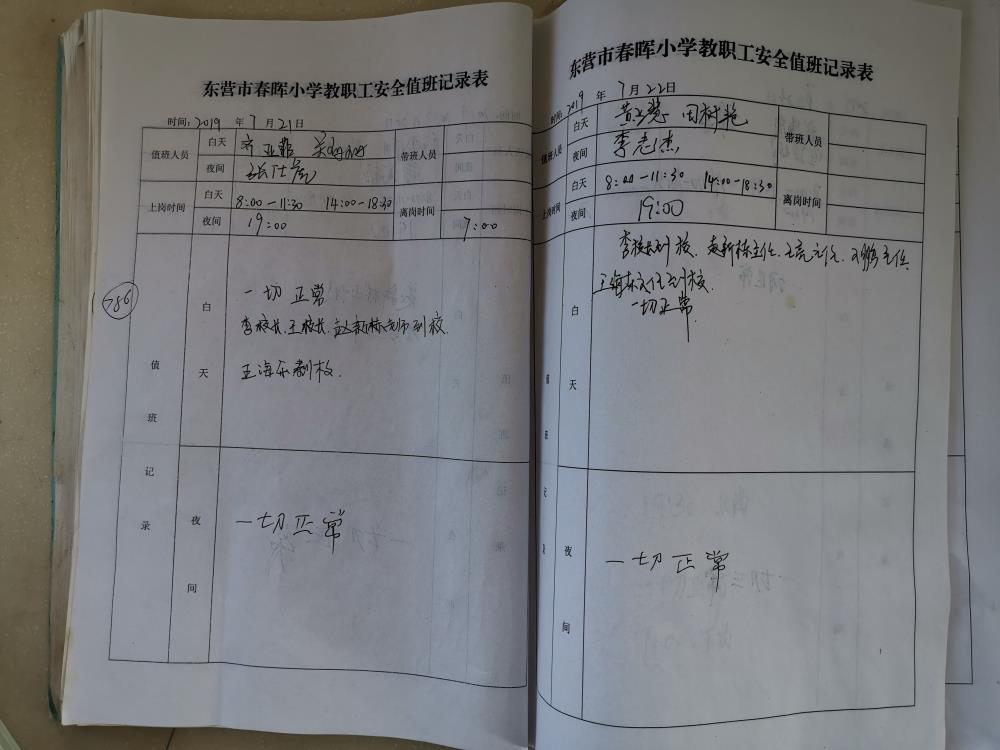 东营市春晖小学教职工安全值班记录表
时间：2019 年 7 月 21 日
值班人员 白天 带班人员
夜间
上岗时间 白天 8:00-11:30 14:00-18:30 离岗时间
夜间 19:00 7:00
786
值班记录
白天
一切正常
李校长、王校长、赵新栋老师到校.
王海东到校.
夜间
一切正常
东营市春晖小学教职工安全值班记录表
时间：2019 年 7 月 22 日
值班人员 白天 周树艳 带班人员
夜间 李志杰
上岗时间 白天 8:00-11:30 14:00-18:30 离岗时间
夜间 19:00
值班记录
白天
李校长到校、赵新栋主任、王亮主任、王鹏主任、
王海东主任到校.
一切正常.
夜间
一切正常